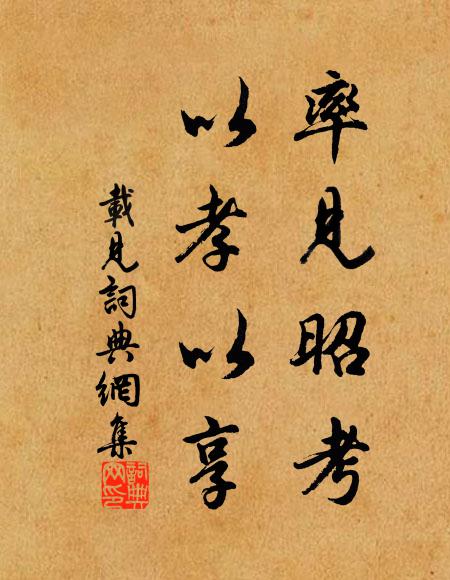 率見昭考
以孝以享
載見詞典網集
詞典
网印